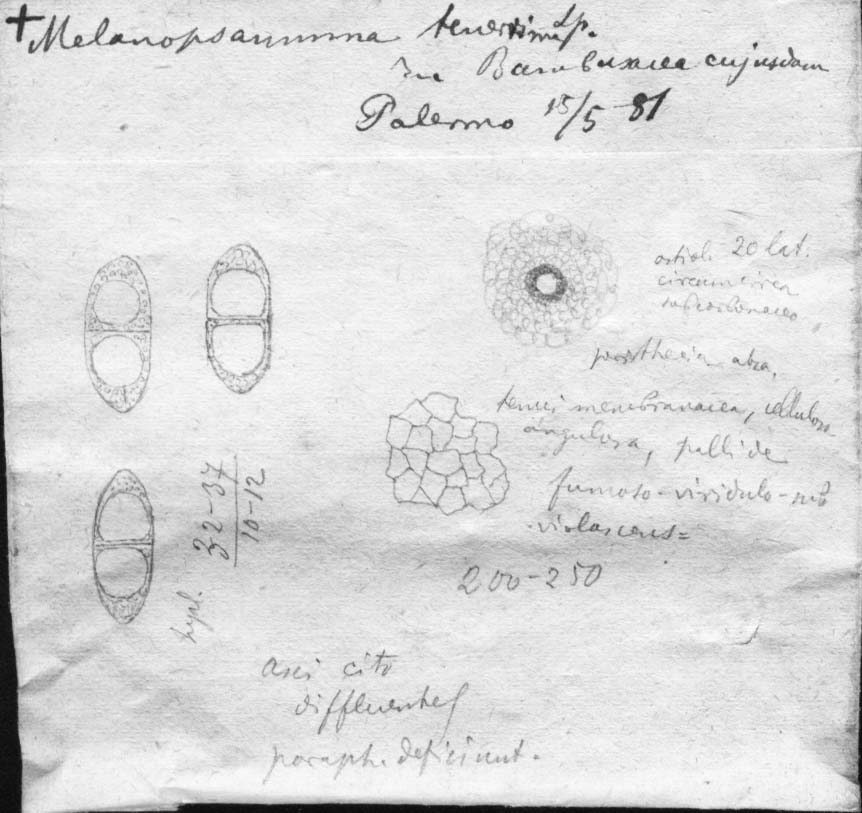 + Melanopsamma tenerrima Sp.
in Bambusacea cujusdam
Palermo 15/5 81
ostiol. 20 lat.
circumcirca
subcarbonaceo
perithecia atra,
tenui membranacea, celluloso
angulosa, pallide
fumoso-viridulo-sub
-violascens=
200-250
32-37
10-12
hyal.
asci cito
diffluentes
paraph. deficiunt.